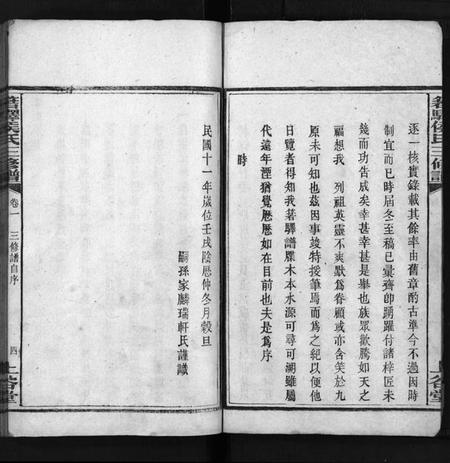 箬驛侯氏三修譜
逐一核實錄載其餘率由舊章酌古準今不過因時
制宜而已時屆冬至稿已彙齊帥踴躍付諸梓匠未
幾而功告成矣幸甚幸甚是舉也族眾歡騰如天之
福想我 列祖英靈不爽默為眷顧或亦含笑於九
原未可知也茲因事竣特援筆焉而為之紀以便他
日覽者得知我箬驛譜牒木本水源可尋可溯雖屬
代遠年湮猶覺歷歷如在目前也夫是為序
時
上谷堂
民國十一年歲位壬戌陰歷仲冬月穀旦
嗣孫家麟瑞軒氏謹識
箬驛侯氏三修譜
卷一 三修譜自序
四
上谷堂